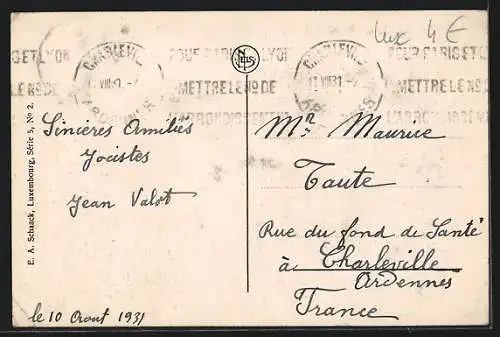 Lux 4 €
GET LYON
CHARLEVI
POUR PARIS ET LYON
NELS
CHARLEVI
POUR PARIS ET L
LE No DE
VIII 31
METTRE LE No DE
11 VIII 31
METTRE LE No DE
ARDENNES
L'ARRONDISSEMENT
L'ARRONDISSEMEN
Sincères Amitiés
Jocistes
Jean Valot
le 10 Aout 1931
E. A. Schaack, Luxembourg, Série 5, No 2.
Mr Maurice
Taute
Rue du fond de Santé
à Charleville
Ardennes
France